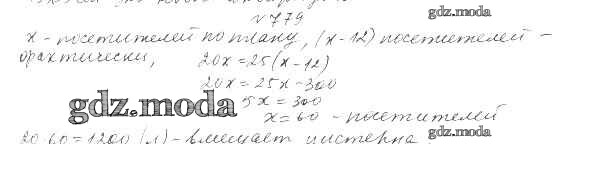 № 779
gdz.moda
x - посетителей по плану, (x-12) посетителей -
практически, 20x = 25(x-12)
20x = 25x - 300
gdz.moda 5x = 300
x = 60 - посетителей
20·60 = 1200 (л) - вмещает цистерна. gdz.moda